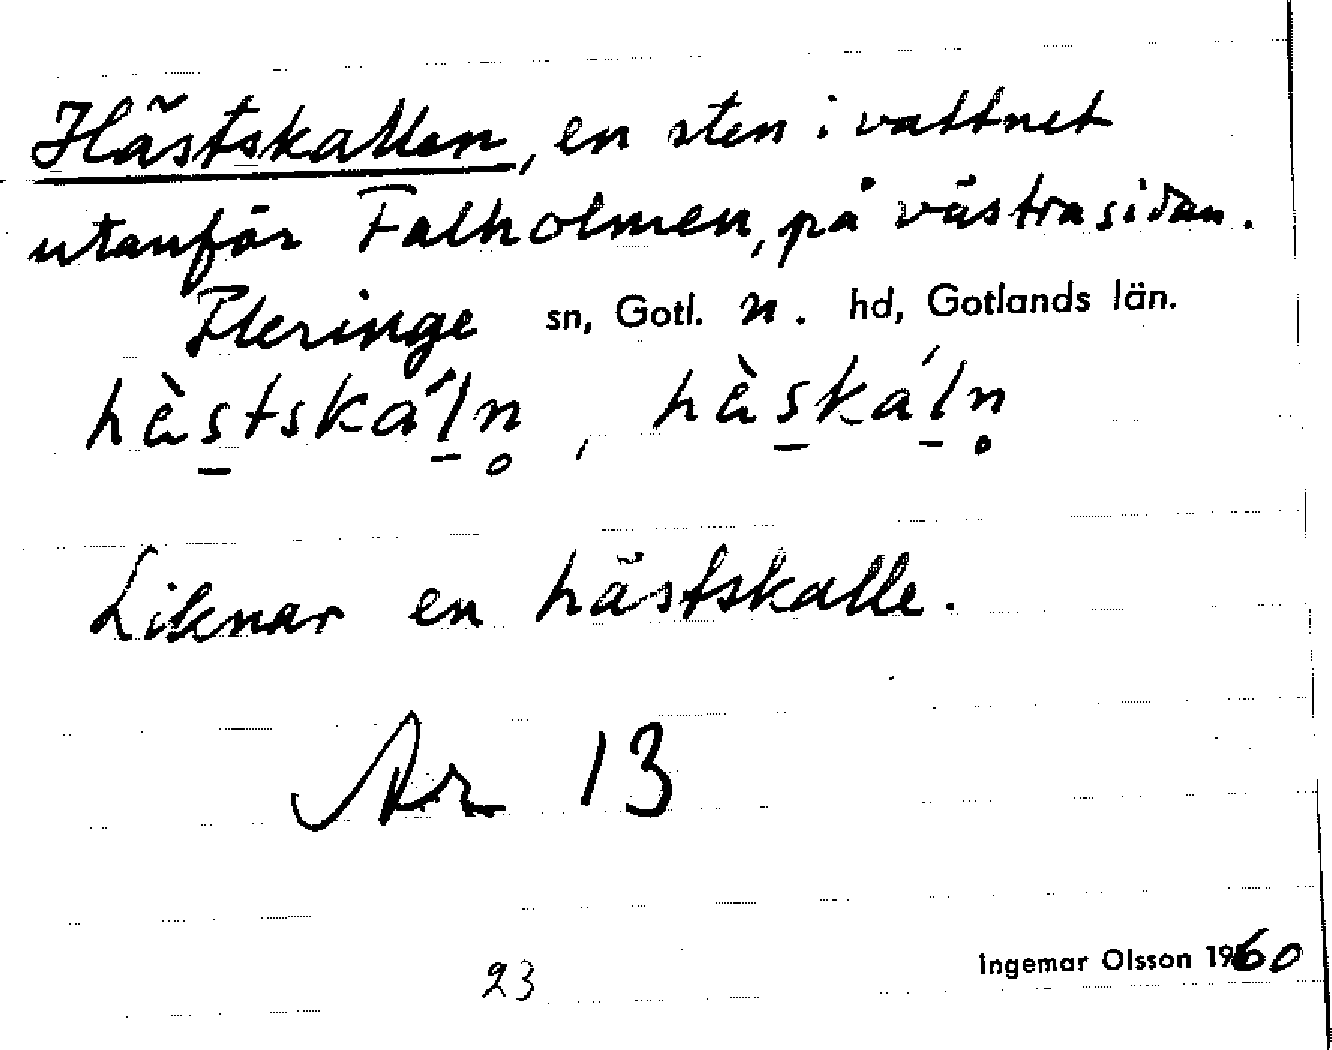 Hästskallen, en sten i vattnet
utanför Falholmen, på västra sidan.
Fleringe sn, Gotl. n. hd, Gotlands län.
hàs̲tska´l̲n̥, hàs̲ka´l̲n̥
Liknar en hästskalle.
Ar 13
23
Ingemar Olsson 1960